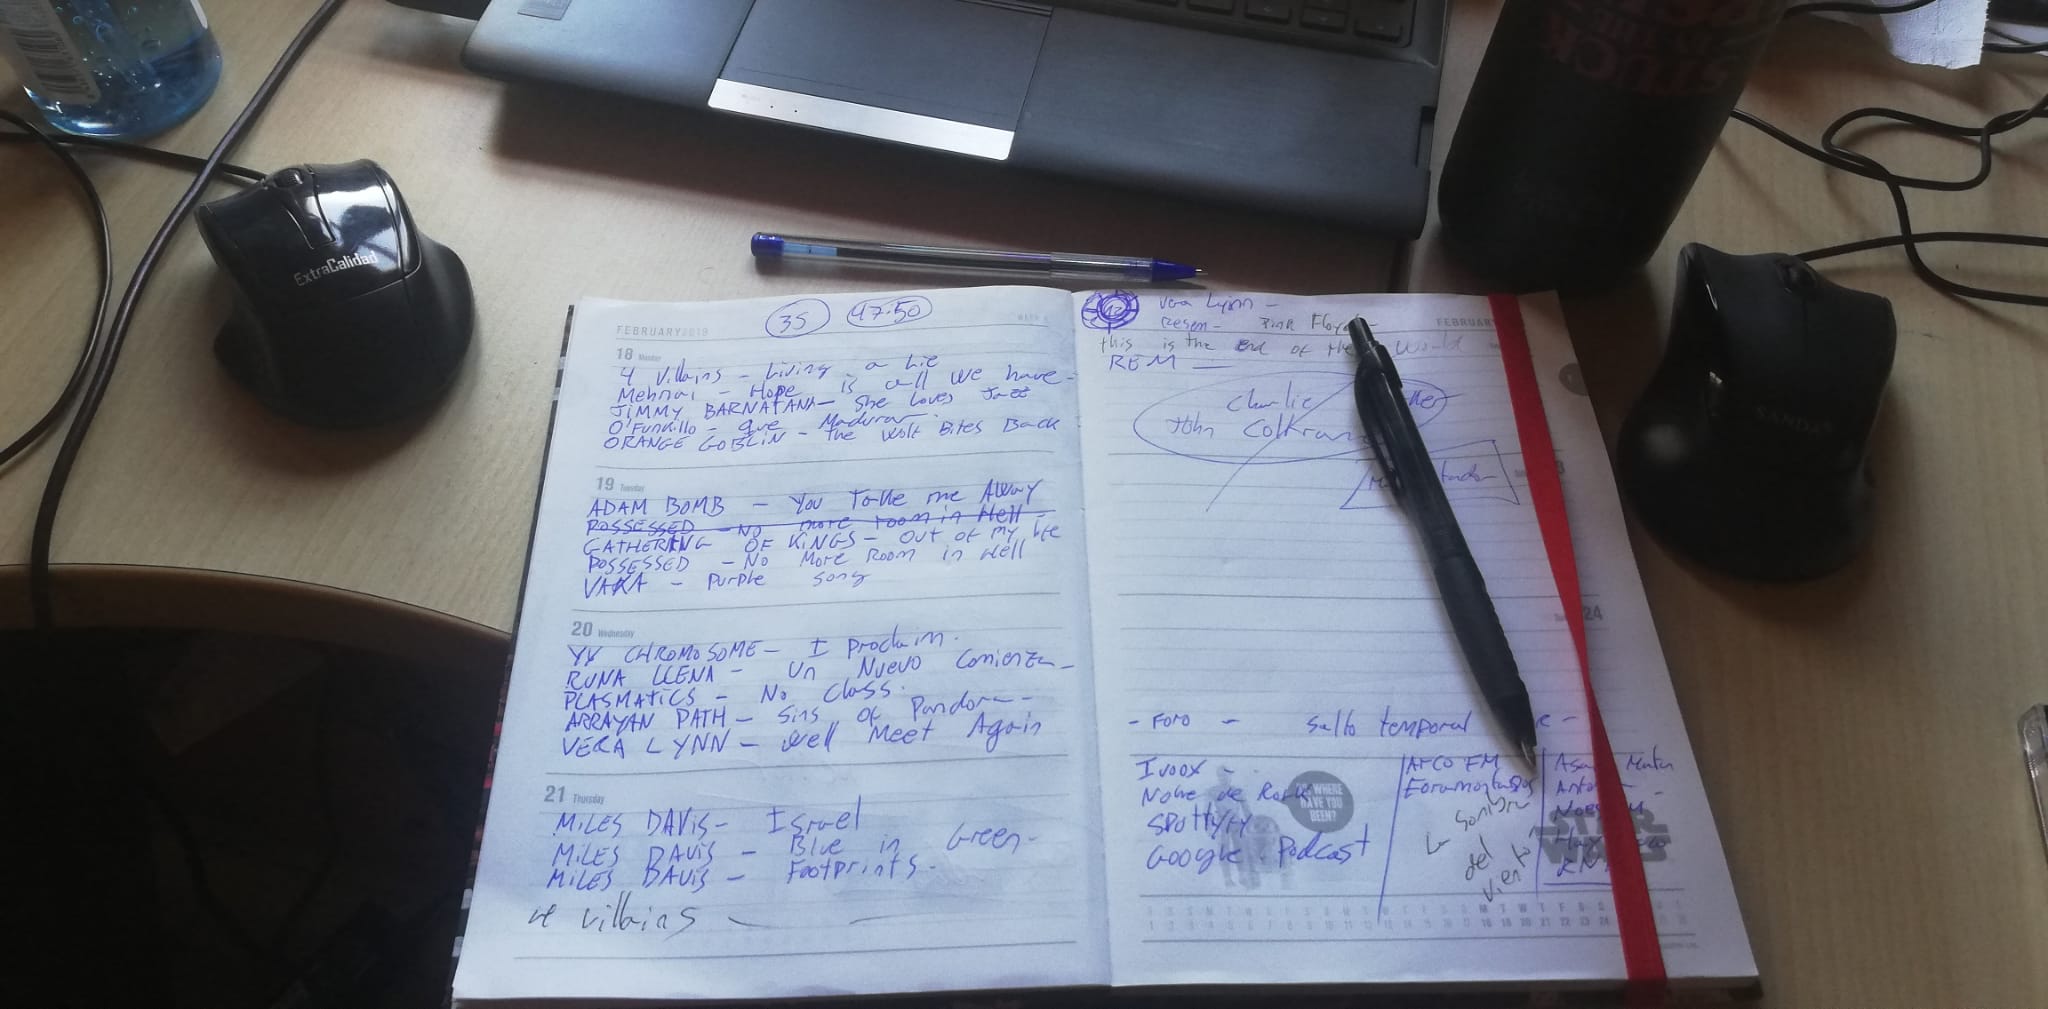 ExtraCalidad
STUCK
IN THE
SANDAS
35
47:50
FEBRUARY 2019
18 Monday
4 Villains - Living a Lie
Mehnai - Hope is all we have -
JIMMY BARNATANA - She Loves Jazz
O'Funkillo - que Madurar.
ORANGE GOBLIN - The Wolf Bites Back
19 Tuesday
ADAM BOMB - You Take me Away
POSSESSED - No more room in Hell -
GATHERING OF KINGS - out of my life
POSSESSED - No More Room in Hell
VAKA - Purple song
20 Wednesday
XY CHROMOSOME - I Proclaim.
RUNA LLENA - Un Nuevo Comienzo -
PLASMATICS - No Class.
ARRAYAN PATH - Sins of Pandora -
VERA LYNN - Well Meet Again
21 Thursday
MILES DAVIS - Israel
MILES DAVIS - Blue in Green -
MILES DAVIS - Footprints -
4 Villains -
Vera Lynn -
Pink Floyd -
FEBRUARY
this is the end of the World
REM
Charlie
John Coltrane
24
- Foro - salto temporal
Ivoox -
Noche de Rock
Spotify
Google Podcast
AFCO FM
La Sombra
del
Viento
WHERE
HAVE YOU
BEEN?
STAR
WARS